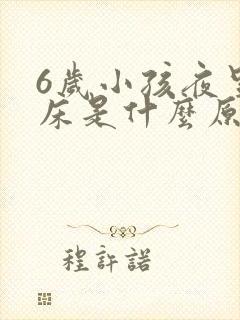 6歲小孩夜
床是什麼原
程許諾